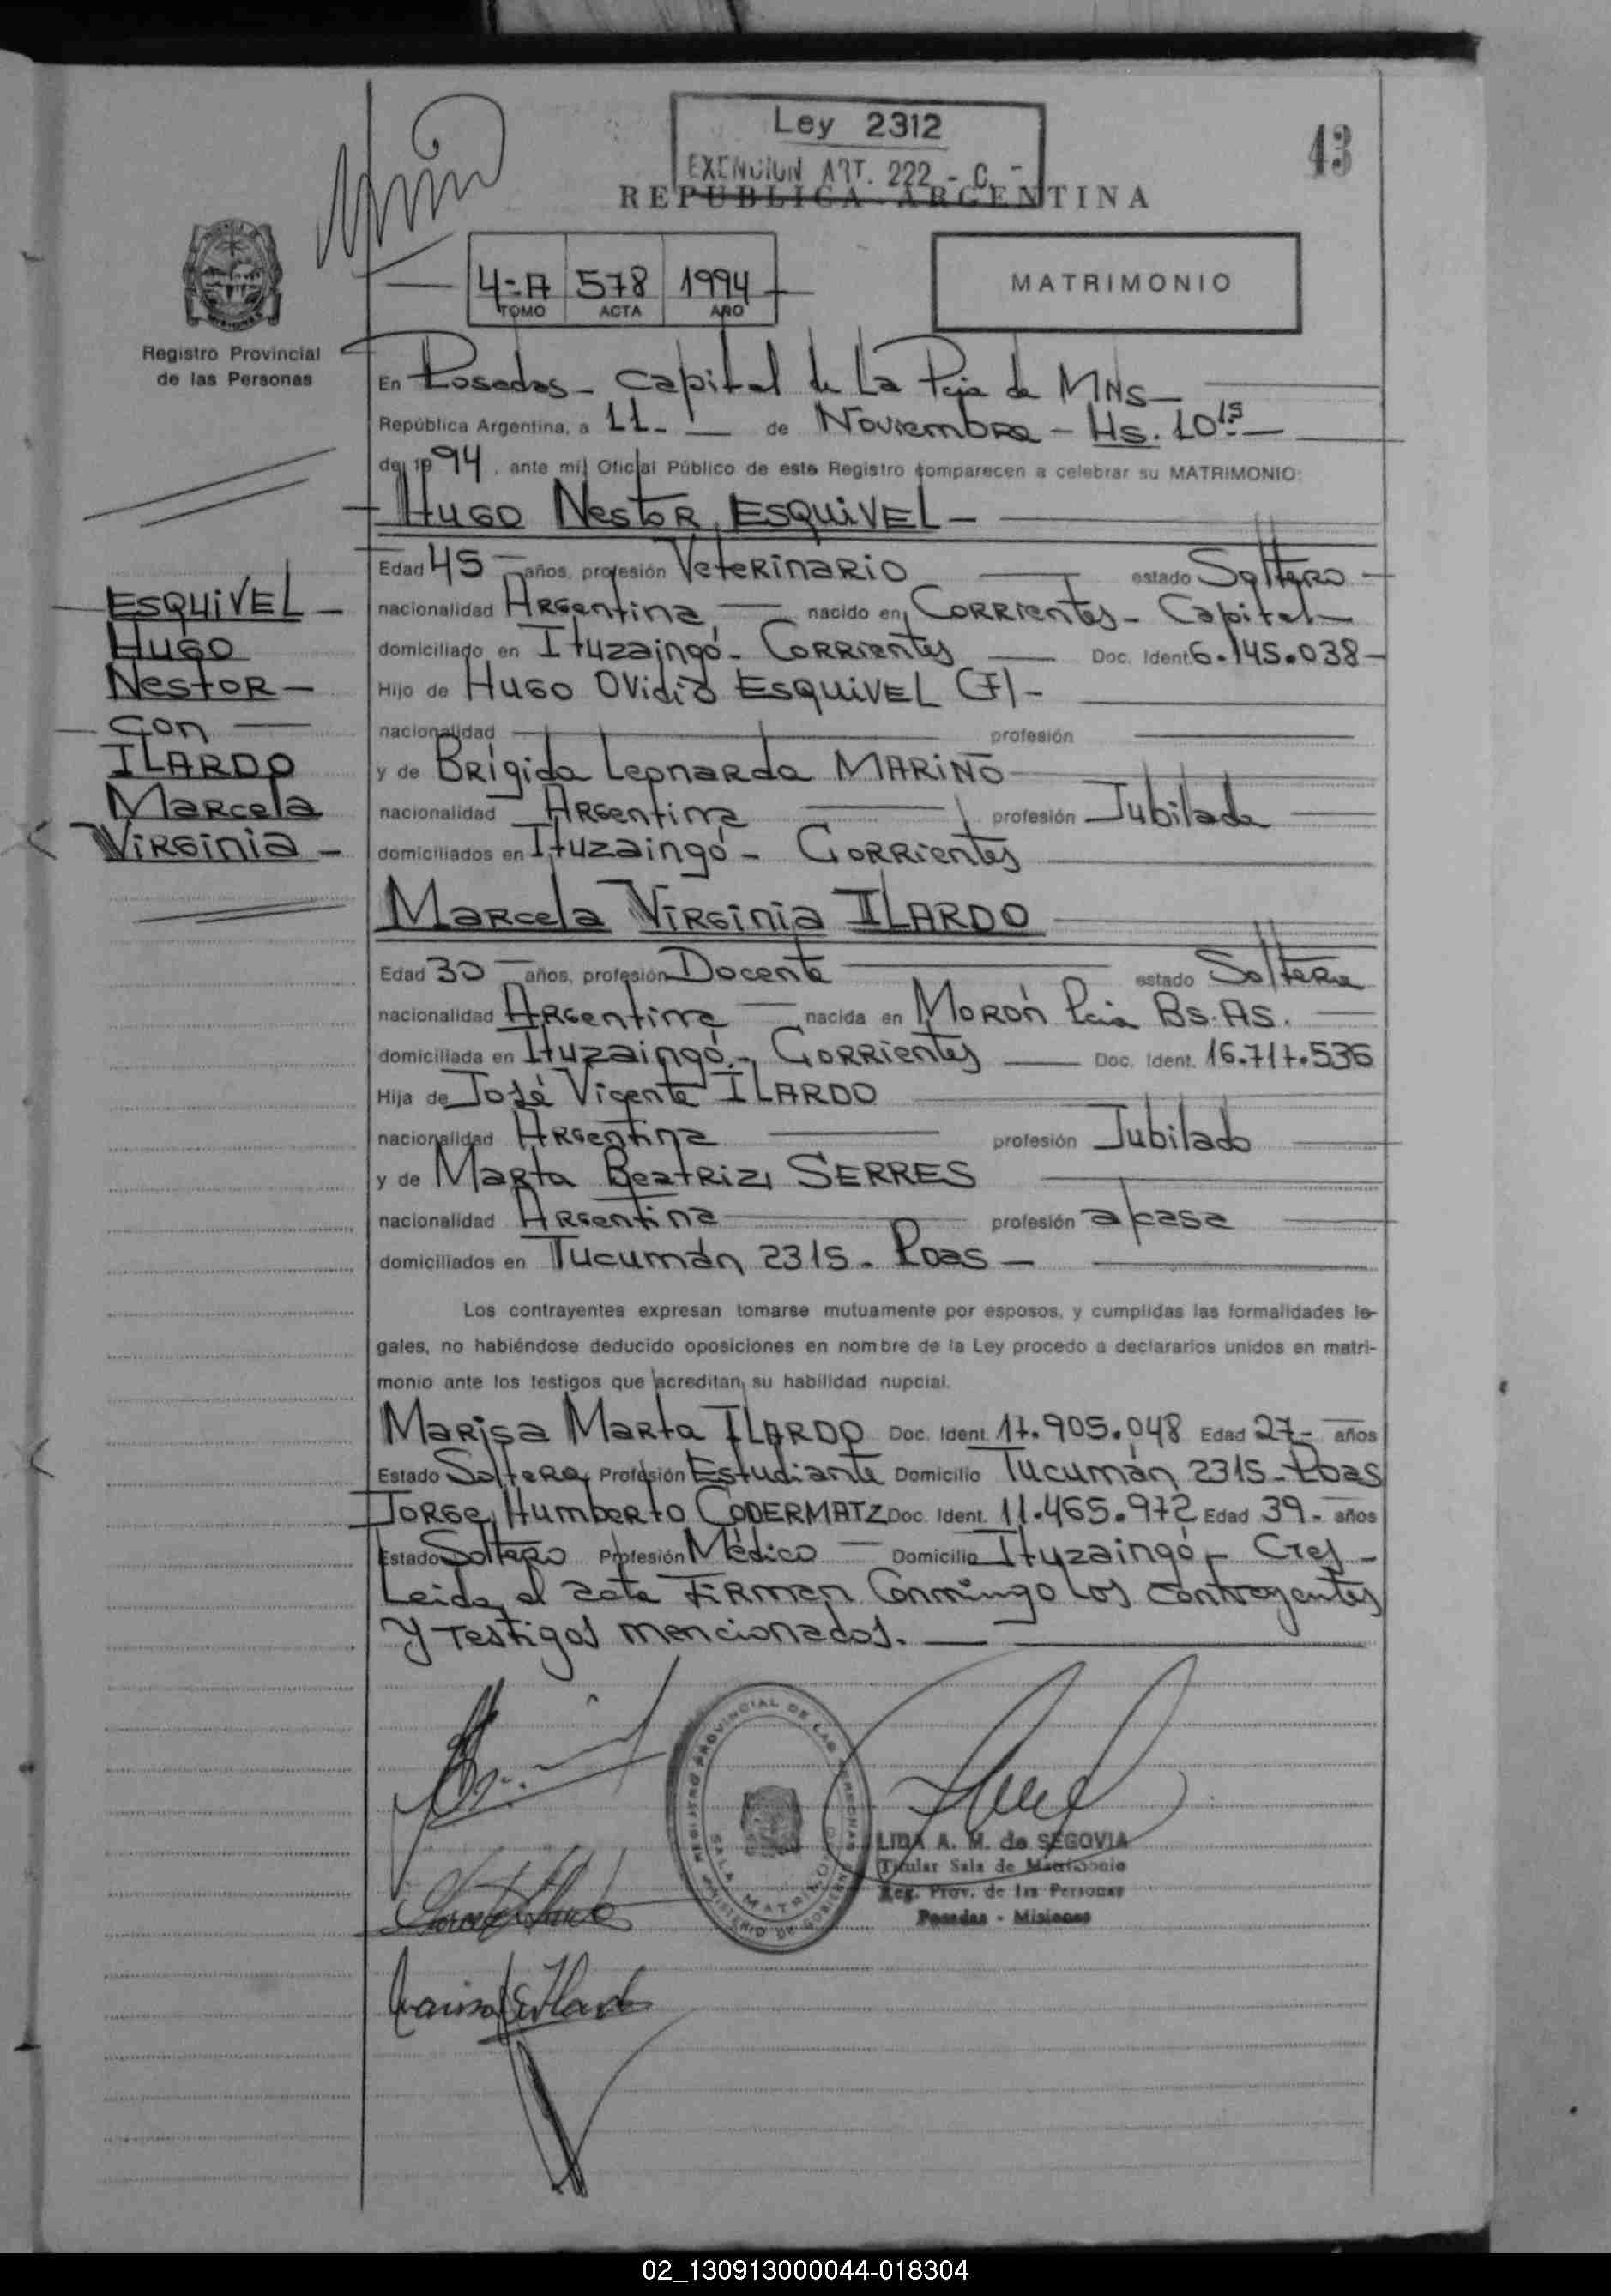 Ley 2312
EXENCION ART. 222 - C. -
43
REPUBLICA ARGENTINA
4-A 578 1994
TOMO ACTA AÑO
MATRIMONIO
Registro Provincial
de las Personas
En Posadas - Capital de La Pcia de MNS -
República Argentina, a 11 - de Noviembre - Hs. 10 15 -
de 1994, ante mi Oficial Público de este Registro comparecen a celebrar su MATRIMONIO:
HUGO Nestor ESQUIVEL -
Edad 45 - años, profesión Veterinario estado Soltero -
nacionalidad Argentina - nacido en Corrientes - Capital
domiciliado en Ituzaingó - Corrientes Doc. Ident. 6.145.038 -
Hijo de HUGO Ovidio ESQUIVEL (F) -
nacionalidad profesión
y de Brígida Leonarda MARIÑO
nacionalidad Argentina profesión Jubilada
domiciliados en Ituzaingó - Corrientes
ESQUIVEL -
HUGO
Nestor -
con
ILARDO
Marcela
Virginia -
Marcela Virginia ILARDO
Edad 30 - años, profesión Docente estado Soltera
nacionalidad Argentina - nacida en Morón Pcia Bs. As.
domiciliada en Ituzaingó - Corrientes Doc. Ident. 16.717.536
Hija de José Vicente ILARDO
nacionalidad Argentina profesión Jubilado
y de Marta Beatriz SERRES
nacionalidad Argentina profesión a/casa
domiciliados en Tucumán 2315 - Pdas -
Los contrayentes expresan tomarse mutuamente por esposos, y cumplidas las formalidades le-
gales, no habiéndose deducido oposiciones en nombre de la Ley procedo a declararlos unidos en matri-
monio ante los testigos que acreditan su habilidad nupcial.
Marisa Marta ILARDO Doc. Ident. 17.905.048 Edad 27 - años
Estado Soltera Profesión Estudiante Domicilio Tucumán 2315 - Pdas
Jorge Humberto CODERMATZ Doc. Ident. 11.465.972 Edad 39 - años
Estado Soltero Profesión Médico - Domicilio Ituzaingó - Ctes -
Leida el acta Firman Conmingo los contrayentes
y testigos mencionados.
REGISTRO PROVINCIAL DE LAS PERSONAS
SALA MATRIMONIO
MINISTERIO DE GOBIERNO
LIDA A. M. de SEGOVIA
Titular Sala de Matrimonio
Reg. Prov. de las Personas
Posadas - Misiones
02_130913000044-018304